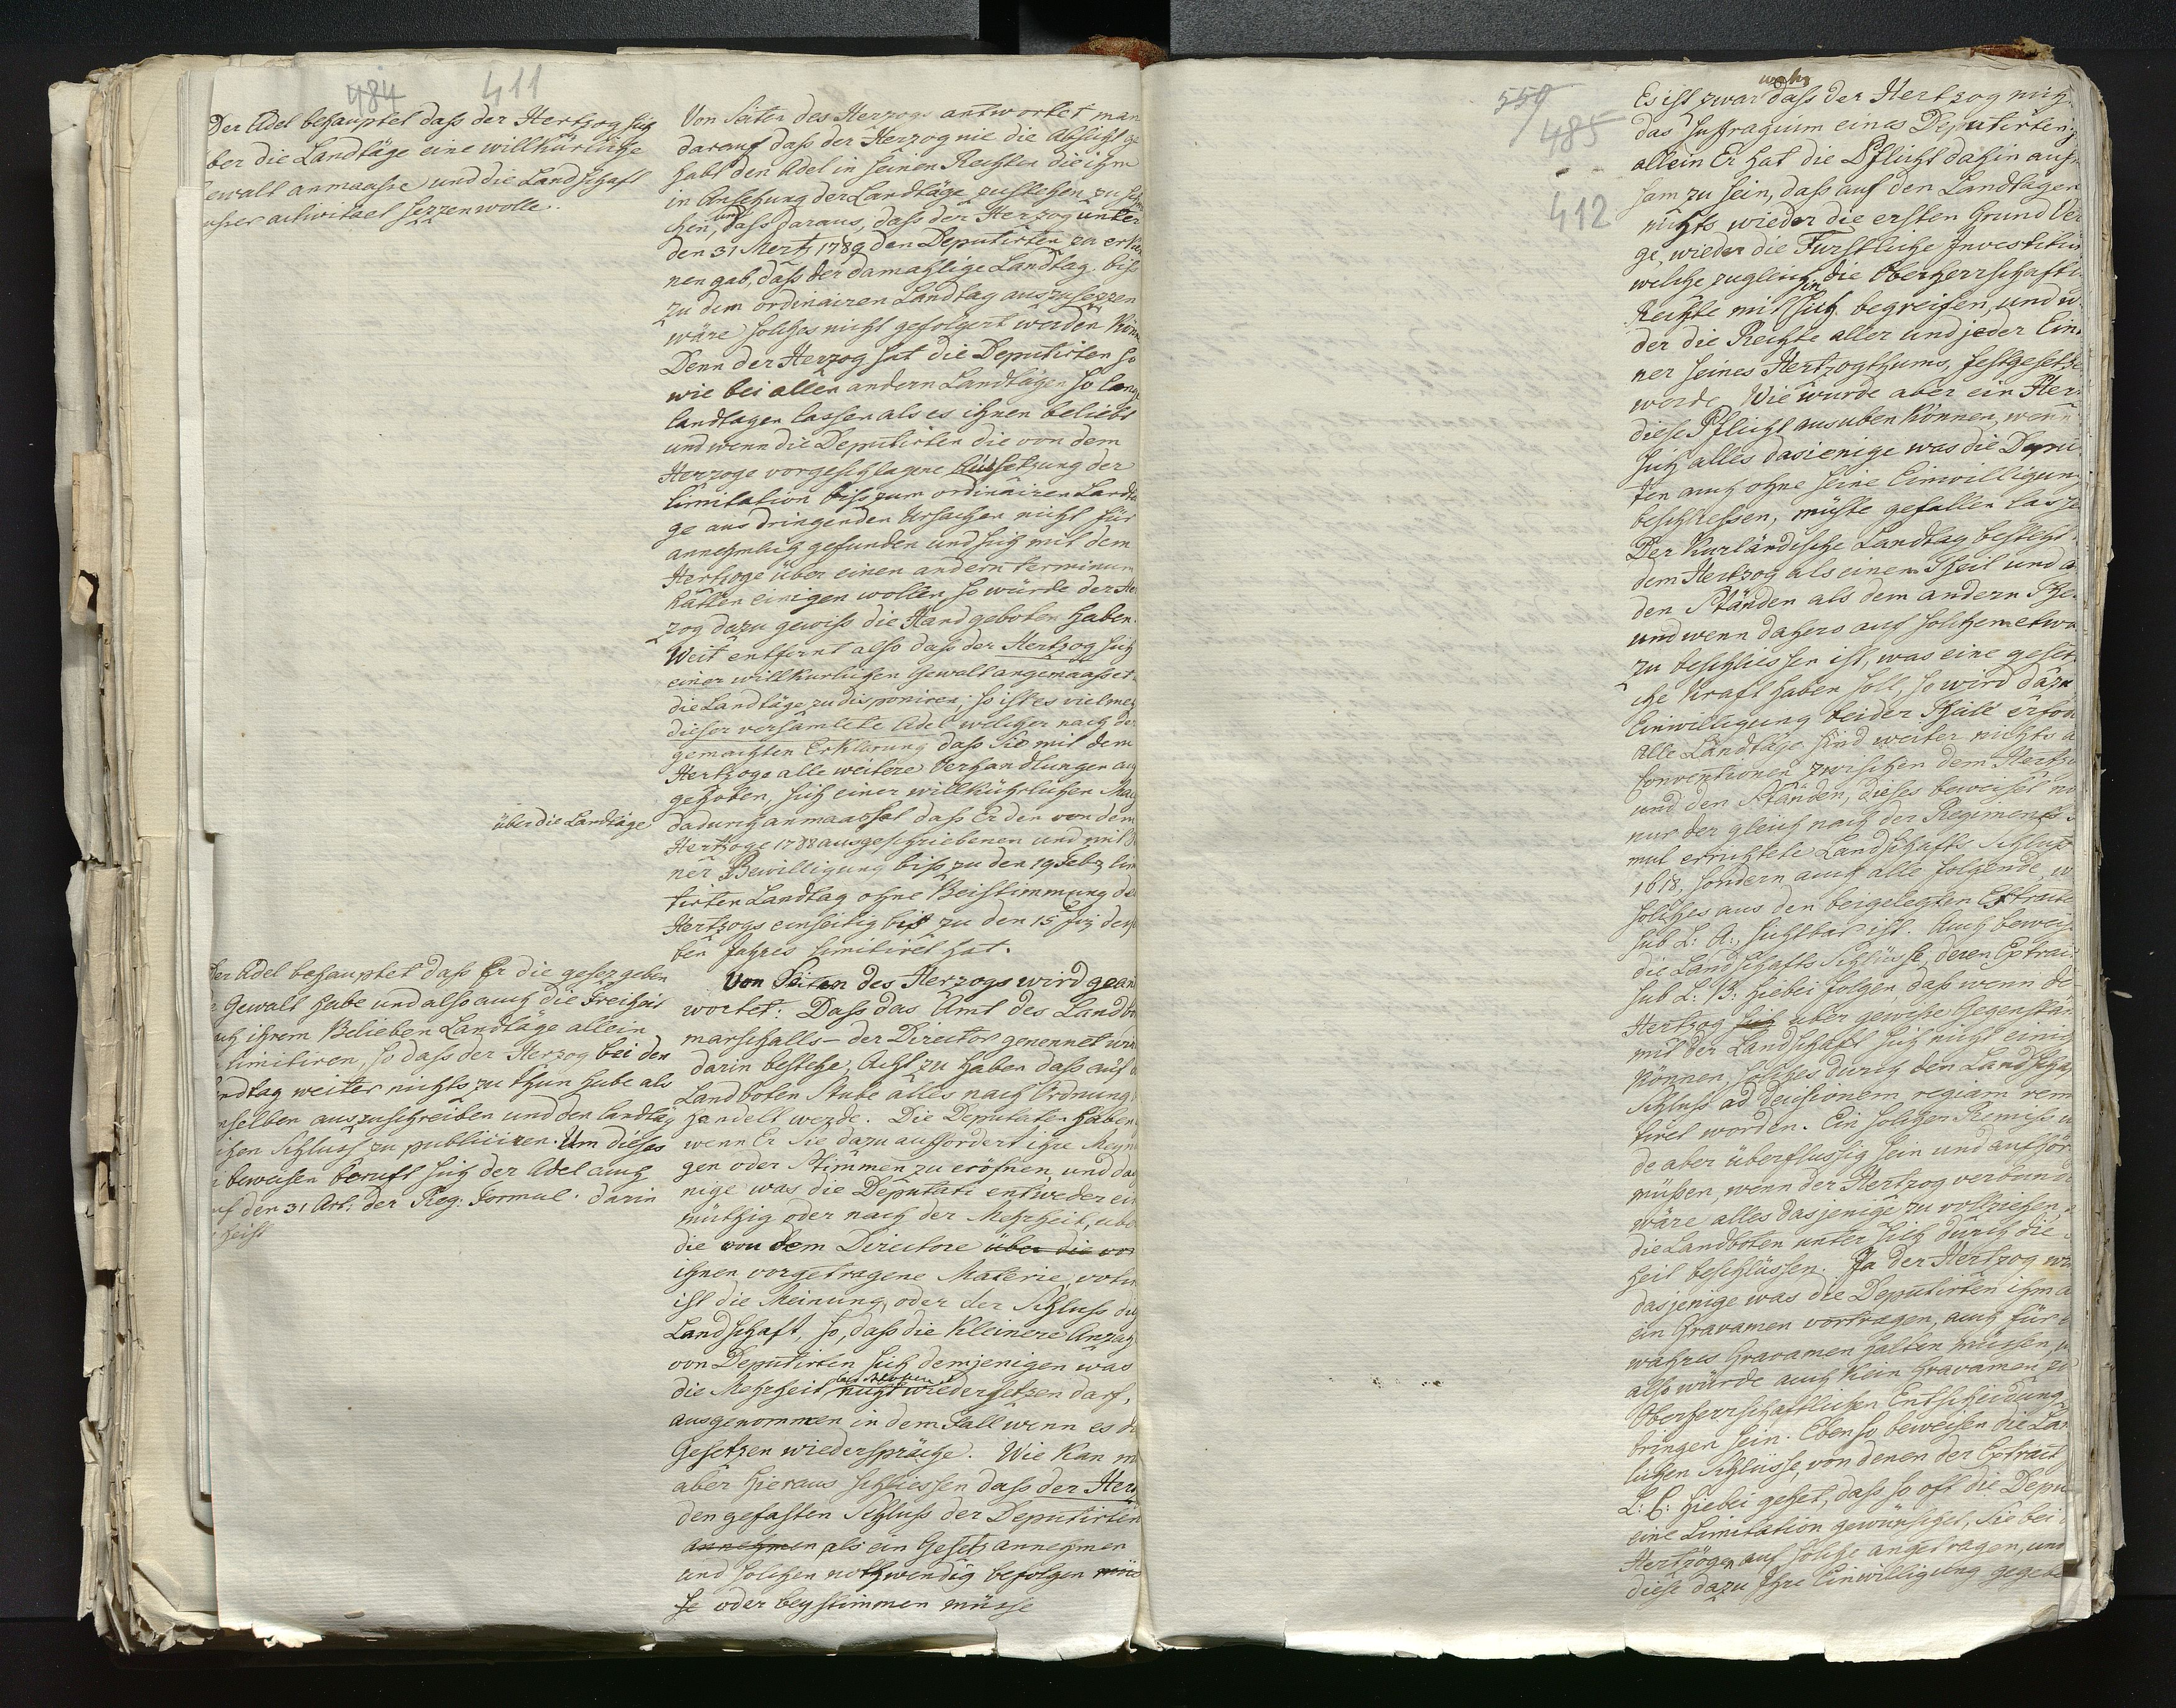 484 411
Der Adel behauptet daß der Hertzog sich
ber die Landtäge eine willkürliche
ewalt anmaasse und die Landschaft
usser activitaet sezzen wolle.
Von Seiten des Herzogs antwortet man
darauf daß der Herzog nie die Absicht ge
habt den Adel in seinen Rechten die ihm
in Ansehung der Landtäge zustehen zu schw
chen, und daß daraus, daß der Herzog unter
den 31 Mertz 1789 den Deputirten zu erken
nen gab, daß der damahlige Landtag biß
zu dem ordinairen Landtag auszusezzen
wäre solches nicht gefolgert werden könn
Denn der Herzog hat die Deputirten so
wie bei allen andern Landtägen so lange
landtagen lassen als es ihnen beliebt
und wenn die Deputirten die von dem
Herzoge vorgeschlagene Aussetzung der
Limitation biß zum ordinairen Landta
ge aus dringenden Ursachen nicht für
annehmlich gefunden und sich mit dem
Hertzoge über einen andern terminum
hätten einigen wollen so würde der Her
zog dazu gewiß die Hand geboten haben.
Weit entfernt also daß der Hertzog sich
einer willkürlichen Gewalt angemaasset
die Landtäge zu disponiren; so ist es vielmeh
dieser versamlete Adel welcher nach der
gemachten Erklärung daß Sie mit dem
Hertzoge alle weitere Verhandlungen auf
gehoben, sich einer willkührlichen Mach
über die Landtäge
dadurch anmaasset daß Er den von dem
Hertzoge 1788 ausgeschriebenen und mit Se
ner Bewilligung biß zu den 19 Febr limi
tirten Landtag ohne Beistimmung des
Hertzogs einseitig biß zu den 15 Jul dessel
ben Jahres limitiret hat.
Der Adel behauptet daß Er die gesezgeben
e Gewalt habe und also auch die Freiheit
ach ihrem Belieben Landtäge allein
limitiren, so daß der Herzog bei den
andtag weiter nichts zu thun habe als
nselben auszuschreiben und den landtäg
ichen Schluß zu publiciren. Um dieses
beweisen beruft sich der Adel auch
uf den 31 Art: der Reg: Formul. darin
heist
Von Seiten des Herzogs wird geant
wortet: Daß das Amt des Landbo
marschalls – der Director genennet wird
darin bestehe, Acht zu haben daß auf d
Landboten Stube alles nach Ordnung
handelt werde. Die Deputaten haben
wenn Er Sie dazu auffordert ihre Meyn
gen oder Stimmen zu eröfnen, und das
nige was die Deputati entweder ein
müthig oder nach der Mehrheit, über
die von dem Directore über die von
ihnen vorgetragene Materie, votir
ist die Meinung, oder der Schluß die
Landschaft, so, daß die kleinere Anzah
von Deputirten sich demjenigen was
die Mehrheit beschlossen nicht wiedersetzen darf,
ausgenommen in dem Fall wenn es de
Gesetzen wiederspräche. Wie kan m
aber hieraus schliessen daß der Hert
den gefasten Schluß der Deputirten
annehmen als ein Gesetz annehmen
und solchen nothwendig befolgen müs
se oder beystimmen müsse
559
485
412
Es ist zwar wahr daß der Hertzog nich
das Suffragium eines Deputirten
allein Er hat die Pflicht dahin aufm
sam zu sein, daß auf den Landtägen
nichts wieder die ersten Grund Ver
ge, wieder die Fürstliche Investitur
welche zugleich die Oberherrschaftl
Rechte mit in sich begreifen, und w
der die Rechte aller und jeder Ein
ner seines Hertzogthums, festgesetze
werde. Wie würde aber ein Her
diese Pflicht ausüben können, wenn
sich alles dasienige was die Depu
ten auch ohne seine Einwilligung
beschliessen, müste gefallen lasse
Der Kurländische Landtag bestehet
dem Hertzog als einem Theil und a
den Ständen als dem andern The
und wenn dahero auf solchem etwa
zu beschliessen ist, was eine geset
che Kraft haben soll, so wird dazu
Einwilligung beider Theile erfor
Alle Landtäge sind weiter nichts a
Conventionen zwischen dem Hertzo
und den Ständen, dieses beweiset ni
nur der gleich nach der Regiments
mul errichtete Landschafts Schluß
1618, sondern auch alle folgende, w
solches aus den beigelegten Extracte
sub L: A: sichtbar ist. Auch beweis
die Landschafts Schlüsse, deren Extrac
sub L: B: hiebei folgen, daß wenn de
Hertzog sich über gewisse Gegenstän
mit der Landschaft sich nicht einig
können, solches durch den Landschaf
Schluß ad decisionem regiam remi
tiret worden. Ein solcher Remiss w
de aber überflüssig sein und aufhör
müßen, wenn der Hertzog verbund
wäre alles dasjenige zu vollziehen,
die Landboten unter sich durch die
heit beschlüssen. Ja der Hertzog wü
dasjenige was die Deputirten ihm a
ein Gravamen vortragen, auch für
wahres Gravamen halten müssen, u
also würde auch kein Gravamen zu
Oberherrschaftlichen Entscheidung
bringen sein. Eben so beweisen die La
lichen Schlüsse, von denen der Extract
L: C: hiebei gehet, daß so oft die Depu
eine Limitation gewünschet, Sie bei
Hertzögen auf solche angetragen, und
diese dazu Ihre Einwilligung gegebe